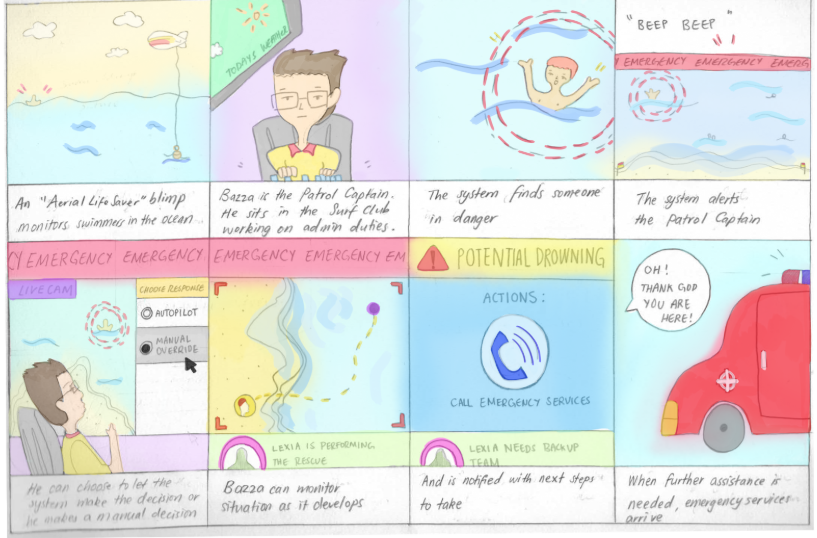 An "Aerial LifeSaver" blimp
monitors swimmers in the ocean
TODAYS WEATHER
Bazza is the Patrol Captain.
He sits in the Surf Club
working on admin duties.
The system finds someone
in danger
"BEEP BEEP"
Y EMERGENCY EMERGENCY EMERG
The system alerts
the Patrol Captain
CY EMERGENCY EMERGENCY
LIVE CAM
CHOOSE RESPONSE
AUTOPILOT
MANUAL
OVERRIDE
He can choose to let the
system make the decision or
he makes a manual decision
EMERGENCY EMERGENCY EM
LEXIA IS PERFORMING
THE RESCUE
Bazza can monitor
situation as it develops
POTENTIAL DROWNING
ACTIONS:
CALL EMERGENCY SERVICES
LEXIA NEEDS BACKUP
TEAM
And is notified with next steps
to take
OH!
THANK GOD
YOU ARE
HERE!
When further assistance is
needed, emergency services
arrive